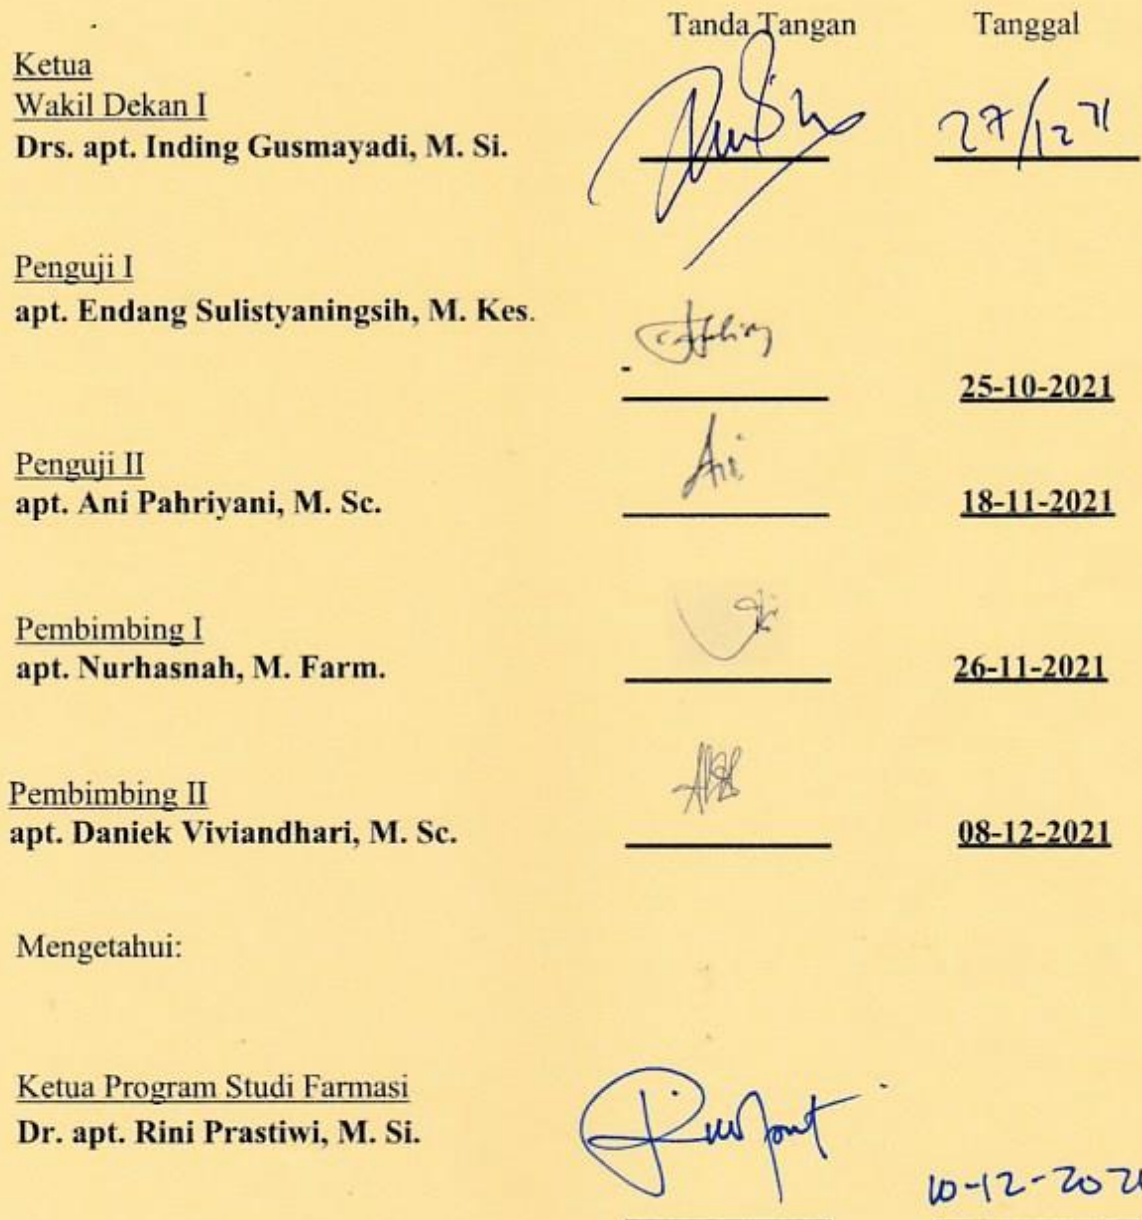 Tanda Tangan Tanggal
Ketua
Wakil Dekan I
Drs. apt. Inding Gusmayadi, M. Si.
27/12 21
Penguji I
apt. Endang Sulistyaningsih, M. Kes.
25-10-2021
Penguji II
apt. Ani Pahriyani, M. Sc.
Ani
18-11-2021
Pembimbing I
apt. Nurhasnah, M. Farm.
26-11-2021
Pembimbing II
apt. Daniek Viviandhari, M. Sc.
08-12-2021
Mengetahui:
Ketua Program Studi Farmasi
Dr. apt. Rini Prastiwi, M. Si.
10-12-2021